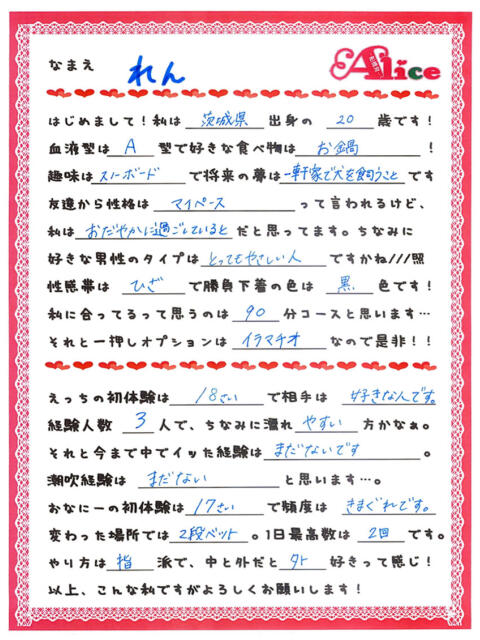 なまえ れん
Alice
はじめまして!私は 茨城県 出身の 20 歳です!
血液型は A 型で好きな食べ物は お鍋 !
趣味は スノーボード で将来の夢は 一軒家で犬を飼うこと です
友達から性格は マイペース って言われるけど、
私は おだやかに過ごしていると だと思ってます。ちなみに
好きな男性のタイプは とってもやさしい人 ですかね///照
性感帯は ひざ で勝負下着の色は 黒 色です!
私に合ってるって思うのは 90 分コースと思います…
それと一押しオプションは イラマチオ なので是非!!
えっちの初体験は 18さい で相手は 好きなんです。
経験人数 3 人で、ちなみに濡れ やすい 方かなぁ。
それと今まで中でイッた経験は まだないです 。
潮吹経験は まだない と思います…。
おなにーの初体験は 17さい で頻度は きまぐれです。
変わった場所では 2段ベット 。1日最高数は 2回 です。
やり方は 指 派で、中と外だと 外 好きって感じ!
以上、こんな私ですがよろしくお願いします!